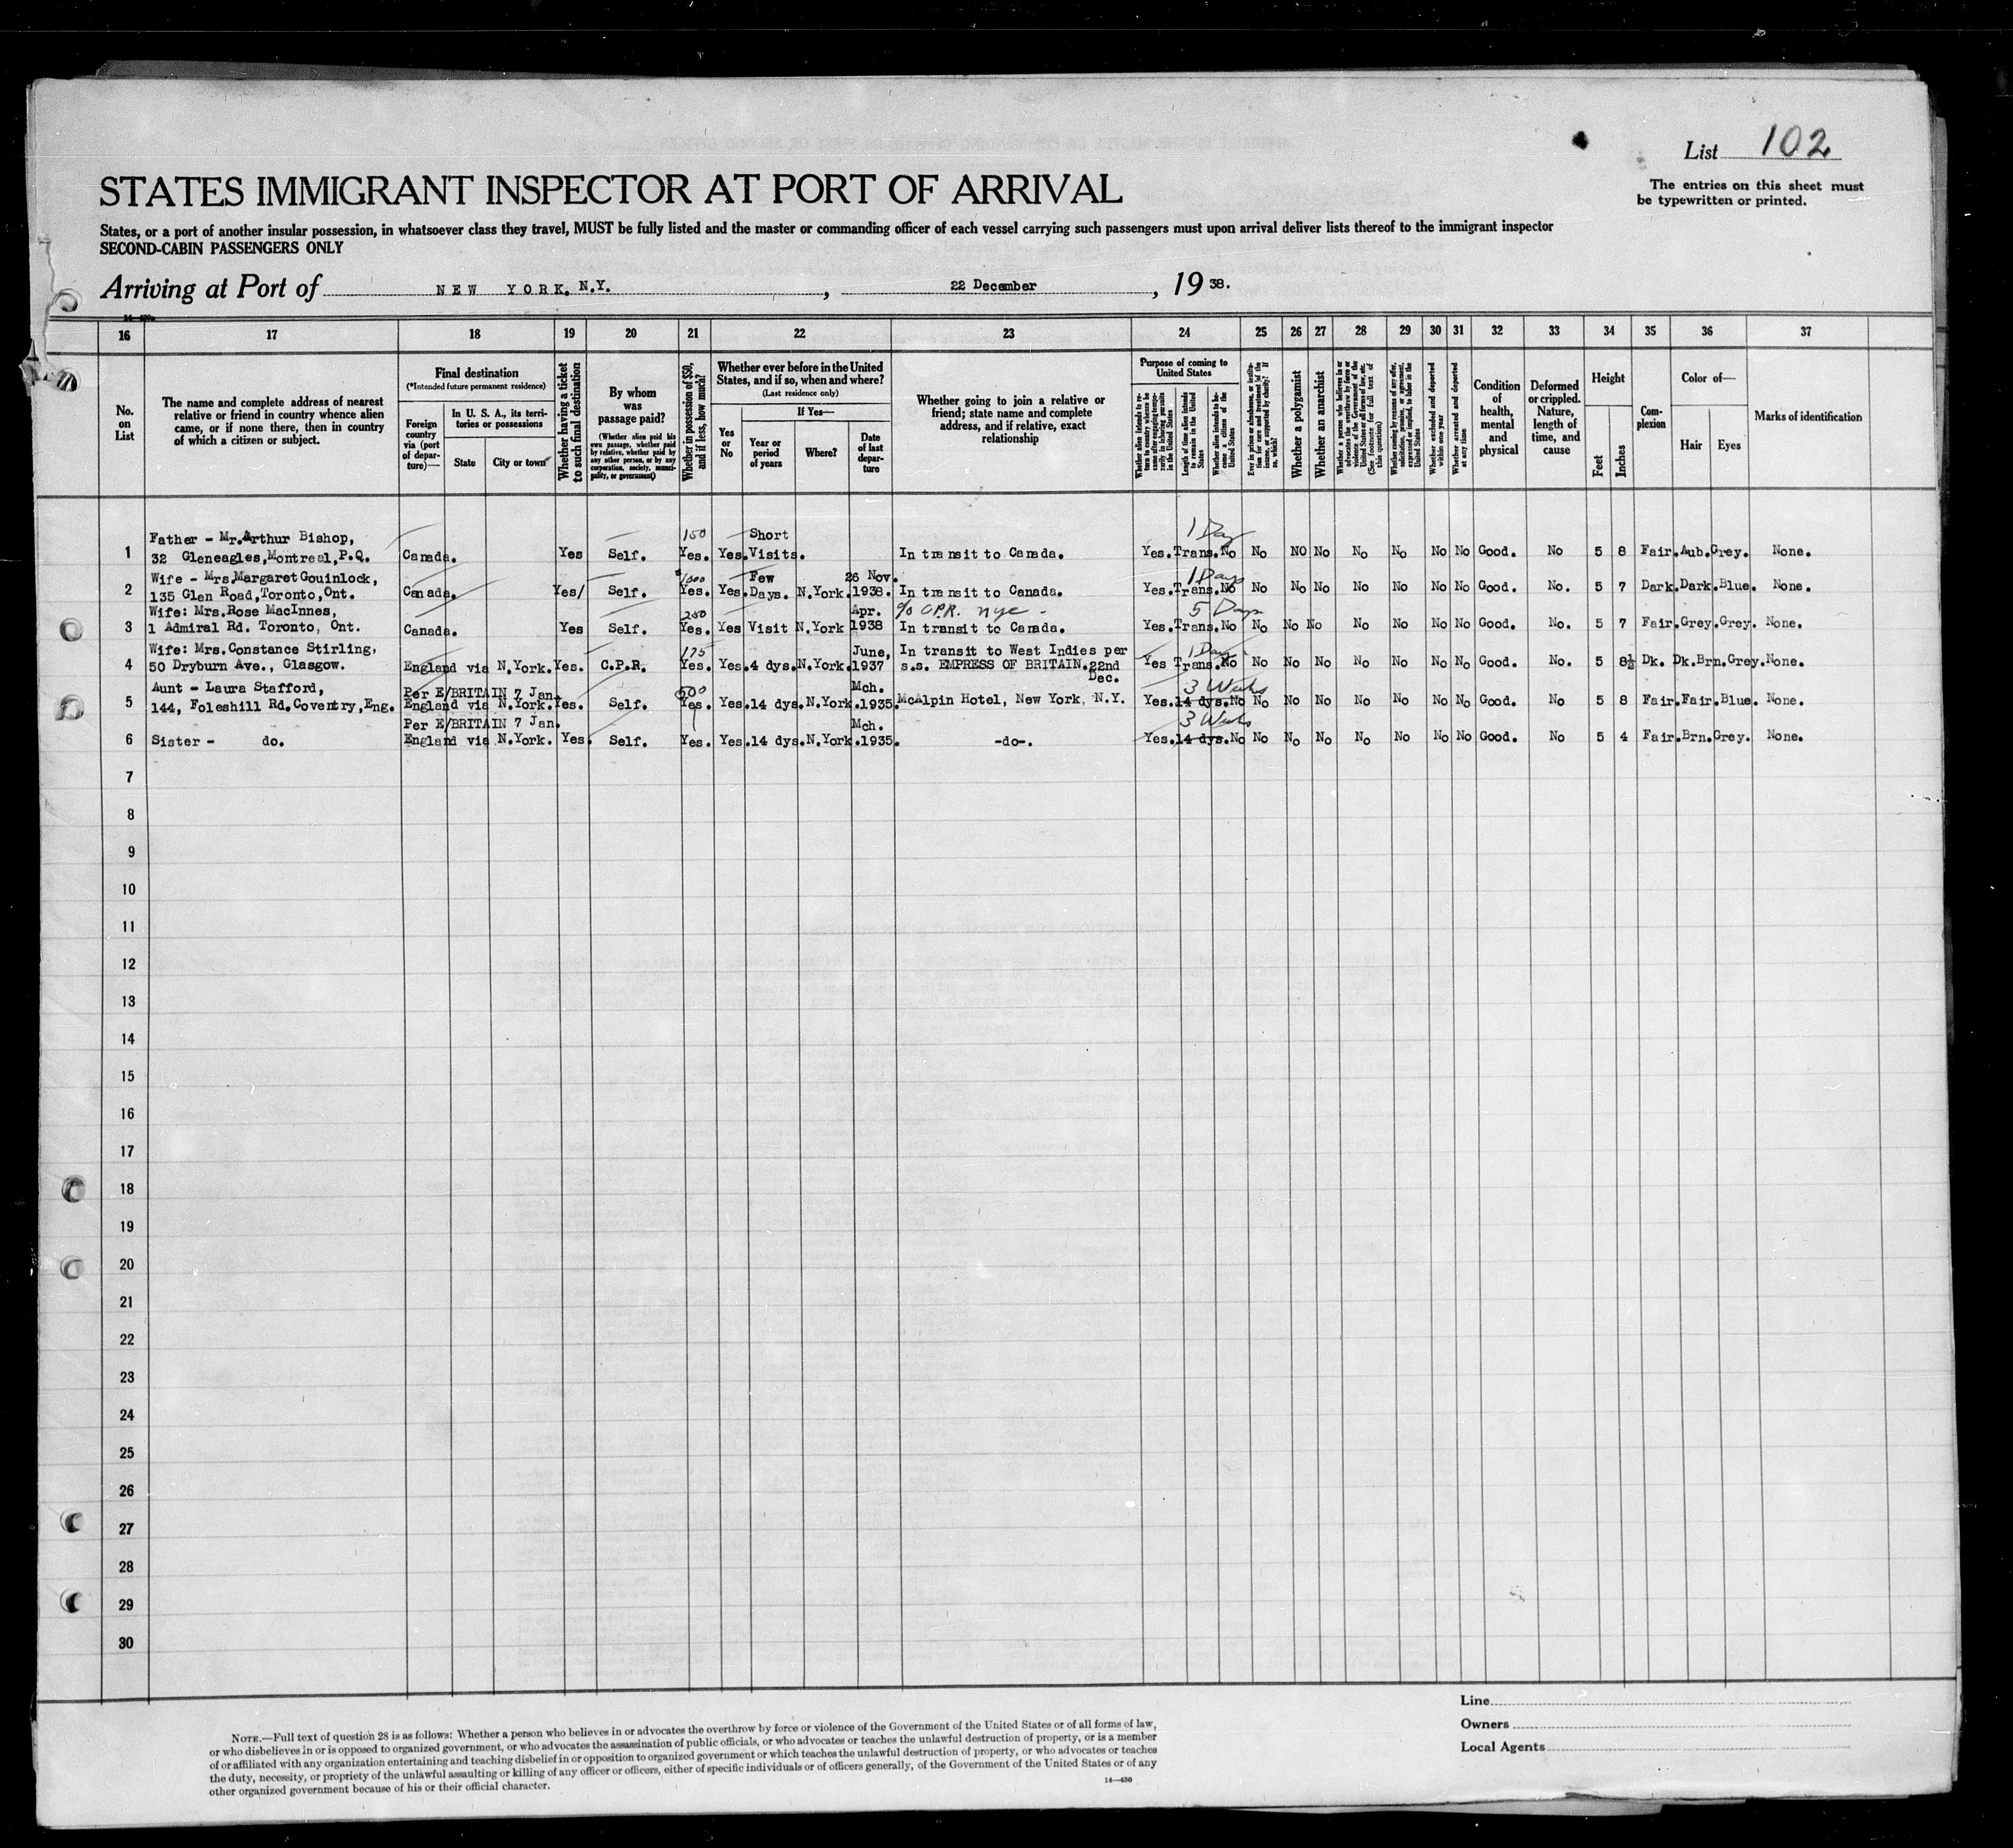 List 102
The entries on this sheet must
be typewritten or printed.
STATES IMMIGRANT INSPECTOR AT PORT OF ARRIVAL
States, or a port of another insular possession, in whatsoever class they travel, MUST be fully listed and the master or commanding officer of each vessel carrying such passengers must upon arrival deliver lists thereof to the immigrant inspector
SECOND-CABIN PASSENGERS ONLY
Arriving at Port of NEW YORK, N.Y. , 22 December , 19 38.
16 17 18 19 20 21 22 23 24 25 26 27 28 29 30 31 32 33 34 35 36 37
No.
on
List
The name and complete address of nearest
relative or friend in country whence alien
came, or if none there, then in country
of which a citizen or subject.
Final destination
(*Intended future permanent residence)
Foreign
country
via (port
of depar-
ture)—
In U. S. A., its terri-
tories or possessions
State
City or town
Whether having a ticket
to such final destination
By whom
was
passage paid?
(Whether alien paid his
own passage, whether paid
by relative, whether paid by
any other person, or by any
corporation, society, munici-
pality, or government)
Whether in possession of $50,
and if less, how much?
Whether ever before in the United
States, and if so, when and where?
(Last residence only)
Yes
or
No
If Yes—
Year or
period
of years
Where?
Date
of last
depar-
ture
Whether going to join a relative or
friend; state name and complete
address, and if relative, exact
relationship
Purpose of coming to
United States
Whether alien intends to re-
turn to country whence he
came after engaging tempo-
rarily in laboring pursuits
in the United States
Length of time alien intends
to remain in the United
States
Whether alien intends to be-
come a citizen of the
United States
Ever in prison or almshouse, or institu-
tion for care and treatment of the
insane, or supported by charity? If
so, which?
Whether a polygamist
Whether an anarchist
Whether a person who believes in or
advocates the overthrow by force or
violence of the Government of the
United States or all forms of law, etc.
(See footnote for full text of
this question)
Whether coming by reasons of any offer,
solicitation, promise, or agreement,
expressed or implied, to labor in the
United States
Whether excluded and deported
within one year
Whether arrested and deported
at any time
Condition
of
health,
mental
and
physical
Deformed
or crippled.
Nature,
length of
time, and
cause
Height
Feet
Inches
Com-
plexion
Color of—
Hair
Eyes
Marks of identification
Father - Mr.Arthur Bishop, 150 Short 1 Day
1 32 Gleneagles,Montreal,P.Q. Canada. Yes Self. Yes. Yes. Visits. In transit to Canada. Yes. Trans. No No NO No No No No No Good. No 5 8 Fair. Aub. Grey. None.
Wife - Mrs.Margaret Gouinlock, 1000 Few 26 Nov. 1 Days
2 135 Glen Road,Toronto,Ont. Canada. Yes/ Self. Yes. Yes. Days. N.York. 1938. In transit to Canada. Yes. Trans. No No No No No No No No Good. No. 5 7 Dark. Dark. Blue. None.
Wife: Mrs.Rose MacInnes, 250 Apr. c/o C.P.R. nyc - 5 Days
3 1 Admiral Rd. Toronto, Ont. Canada. Yes Self. Yes. Yes Visit N.York 1938 In transit to Canada. Yes. Trans. No No No No No No No No Good. No. 5 7 Fair. Grey. Grey. None.
Wife: Mrs.Constance Stirling, 175 June, In transit to West Indies per 1 Day
4 50 Dryburn Ave., Glasgow. England via N.York. Yes. C.P.R. Yes. Yes. 4 dys. N.York. 1937 s.s. EMPRESS OF BRITAIN.22nd Yes Trans. No No No No No No No No Good. No. 5 8½ Dk. Dk.Brn. Grey. None.
Dec.
Aunt - Laura Stafford, Per E/BRITAIN 7 Jan. 500 Mch. 3 Weeks
5 144, Foleshill Rd.Coventry,Eng. England via N.York. Yes. Self. Yes. Yes. 14 dys. N.York. 1935. McAlpin Hotel, New York, N.Y. Yes. 14 dys. No No No No No No No No Good. No 5 8 Fair. Fair. Blue. None.
Per E/BRITAIN 7 Jan. Mch. 3 Weeks
6 Sister - do. England via N.York. Yes. Self. Yes. Yes. 14 dys. N.York. 1935. -do-. Yes. 14 dys. No No No No No No No No Good. No 5 4 Fair. Brn. Grey. None.
7
8
9
10
11
12
13
14
15
16
17
18
19
20
21
22
23
24
25
26
27
28
29
30
Line
Owners
Local Agents
NOTE.—Full text of question 28 is as follows: Whether a person who believes in or advocates the overthrow by force or violence of the Government of the United States or of all forms of law,
or who disbelieves in or is opposed to organized government, or who advocates the assassination of public officials, or who advocates or teaches the unlawful destruction of property, or is a member
of or affiliated with any organization entertaining and teaching disbelief in or opposition to organized government or which teaches the unlawful destruction of property, or who advocates or teaches
the duty, necessity, or propriety of the unlawful assaulting or killing of any officer or officers, either of specific individuals or of officers generally, of the Government of the United States or of any
other organized government because of his or their official character.
14—430